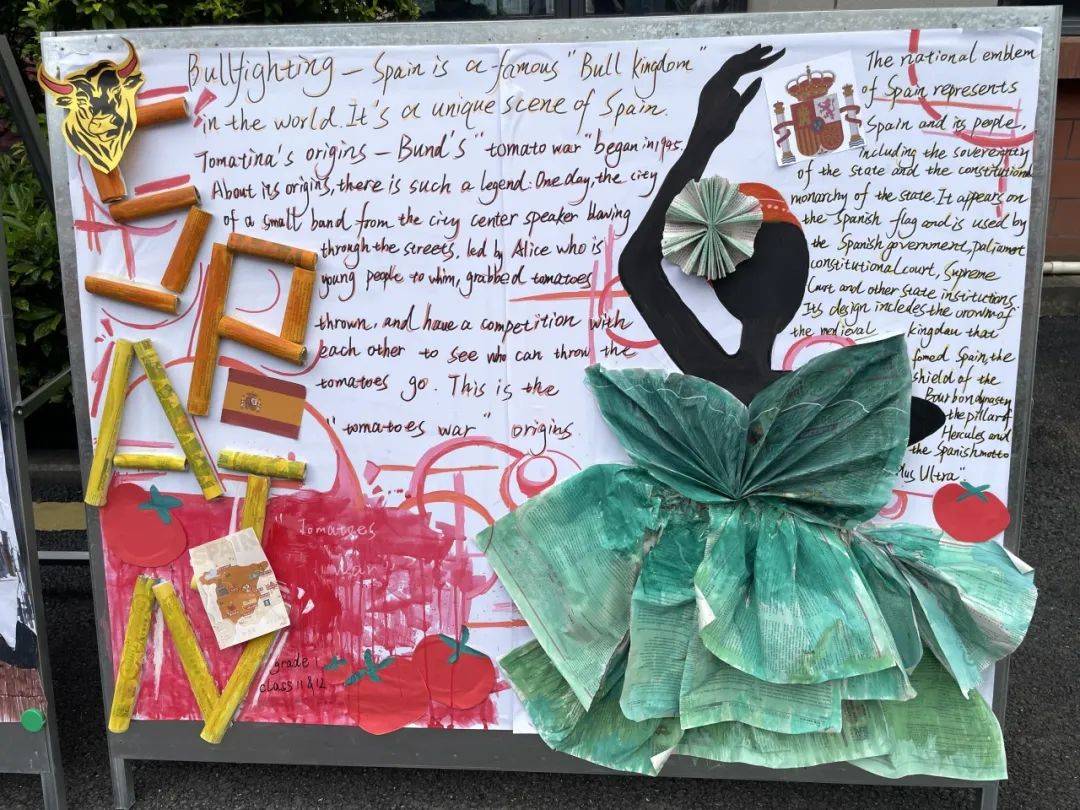 Bullfighting — Spain is a famous "Bull kingdom"
in the world. It's a unique scene of Spain.
Tomatina's origins — Bund's "tomato war" began in 1945.
About its origins, there is such a legend: One day, the city
of a small band from the city center speaker Having
through the streets, led by Alice who is
young people to whim, grabbed tomatoes
thrown, and have a competition with
each other to see who can throw the
tomatoes go. This is the
"tomatoes war" origins.
The national emblem
of Spain represents
Spain and its people,
including the sovereignty
of the state and the constitutional
monarchy of the state. It appears on
the Spanish flag and is used by
the Spanish government, paliament
constitutional court, Supreme
Court and other state institutions.
Its design includes the crown of
the medieval kingdom that
fomed Spain, the
shield of the
Bourbon dynasty
the pillar of
Hercules and
the Spanish motto
Plus Ultra".
SPAIN
"Tomatoes
War"
grade 1
class 11 & 12